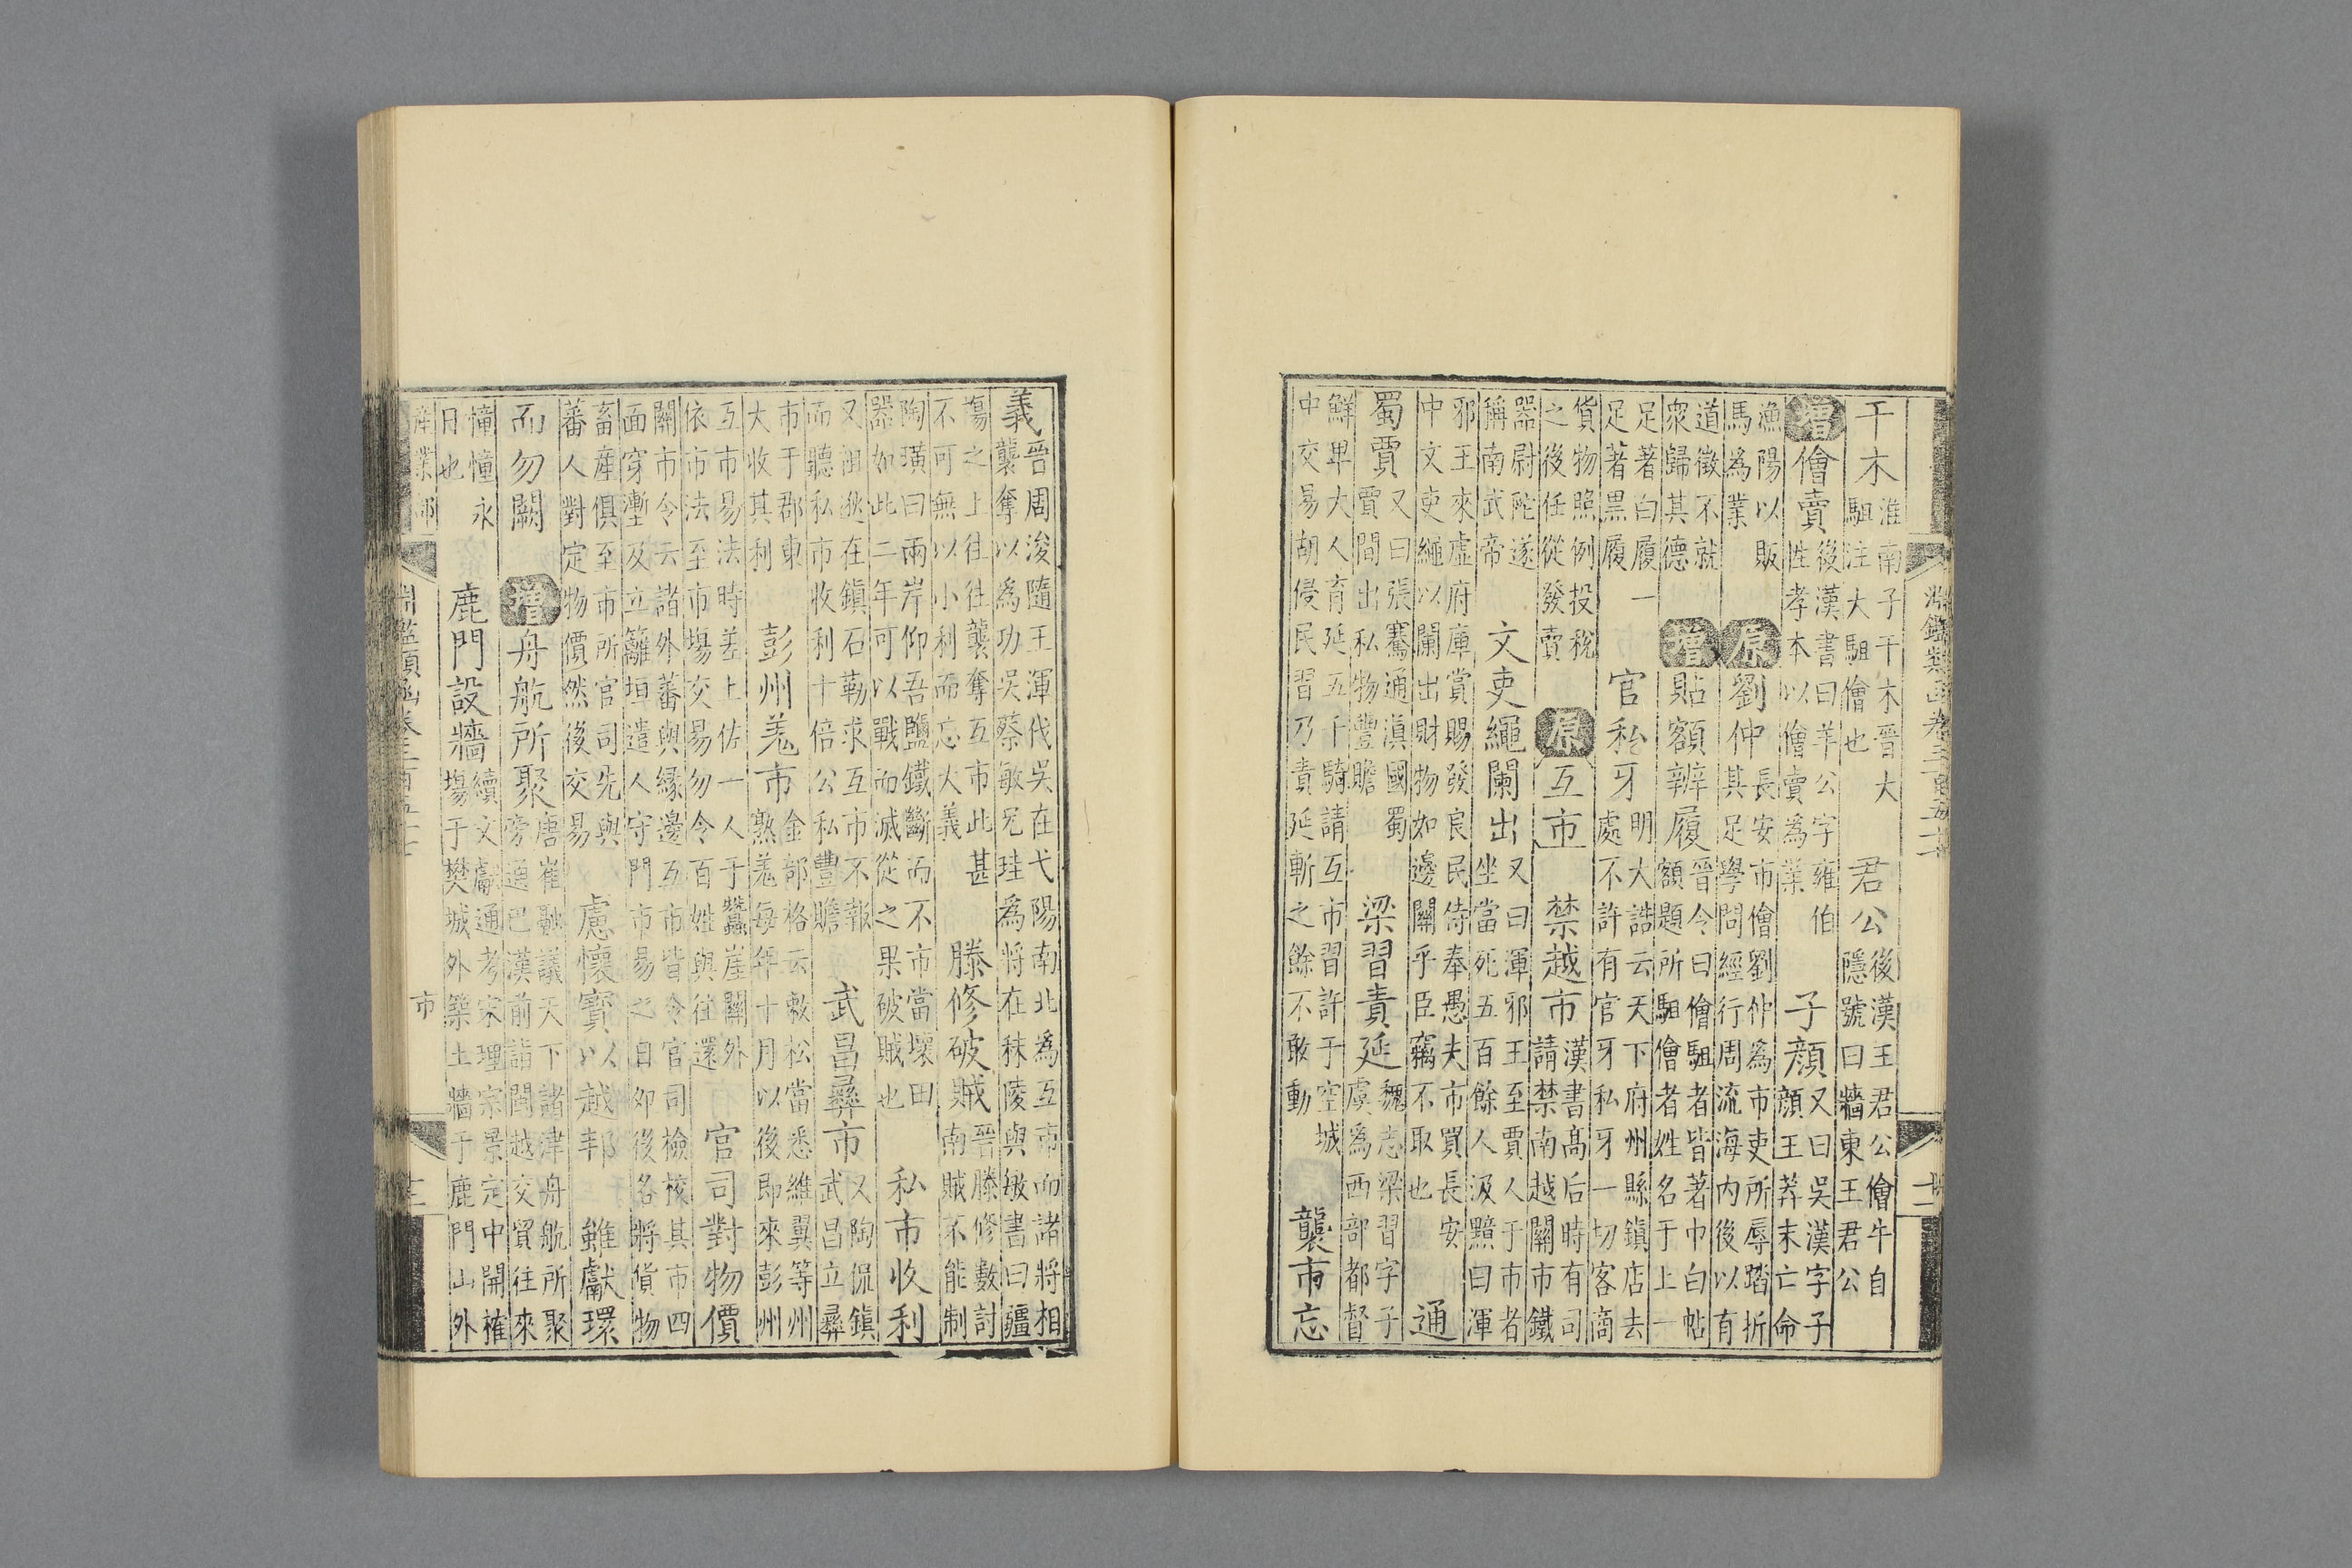 干木淮南子干木晉大駔注大駔儈也　君公後漢王君公儈牛自隱號曰牆東王君公
增儈賣後漢書曰羊公字雍伯性孝本以儈賣為業　子顏又曰吳漢字子顏王莽末亡命
漁陽以販馬為業　原劉仲長安市儈劉仲為市吏所辱踏折其足學問經行周流海內後以有
道徵不就衆歸其德　增貼額辨履晉令曰儈駔者皆著巾白帖額題所駔儈者姓名于上一
足著白履一足著黑履　官私牙明大誥云天下府州縣鎮店去處不許有官牙私牙一切客商
貨物照例投稅之後任從發賣　原互市　禁越市漢書高后時有司請禁南越關市鐵
器尉陀遂稱南武帝　文吏繩闌出又曰渾邪王至賈人于市者坐當死五百餘人汲黯曰渾
邪王來虛府庫賞賜發良民侍奉愚夫市買長安中文吏繩以闌出財物如邊關乎臣竊不取也　通
蜀賈又曰張騫通滇國蜀賈間出私物豐贍　梁習責延魏志梁習字子虞為西部都督
鮮卑大人育延五千騎請互市習許于空城中交易胡侵民習乃責延斬之餘不敢動　襲市忘
義晉周浚隨王渾代吳在弋陽南北為互市而諸將相襲奪以為功吳蔡敏兄珪為將在秣陵與敏書曰疆
塲之上往往襲奪互市此甚不可無以小利而忘大義　滕修破賊晉滕修數討南賊不能制
陶璜曰兩岸仰吾鹽鐵斷而不市當壞田器如此二年可以戰而滅從之果破賊也　私市收利
又祖逖在鎮石勒求互市不報而聽私市收利十倍公私豐贍　武昌彝市又陶侃鎮武昌立彝
市于郡東大收其利　彭州羌市金部格云敕松當悉維翼等州熟羌每年十月以後即來彭州
互市易法時差上佐一人于蠶崖關外依市法至市塲交易勿令百姓與往還　官司對物價
關市令云諸外蕃與緣邊互市皆令官司檢校其市四面穿壍及立籬垣遣人守門市易之日卯後各將貨物
畜產俱至市所官司先與蕃人對定物價然後交易　慮懷寶以越邦　雖獻環
而勿闕　增舟航所聚唐崔融議天下諸津舟航所聚旁通巴漢前詣閩越交貿往來
憧憧永日也　鹿門設牆續文獻通考宋理宗景定中開榷塲于樊城外築土牆于鹿門山外
產業部　淵鑑類函卷三百五十七　市